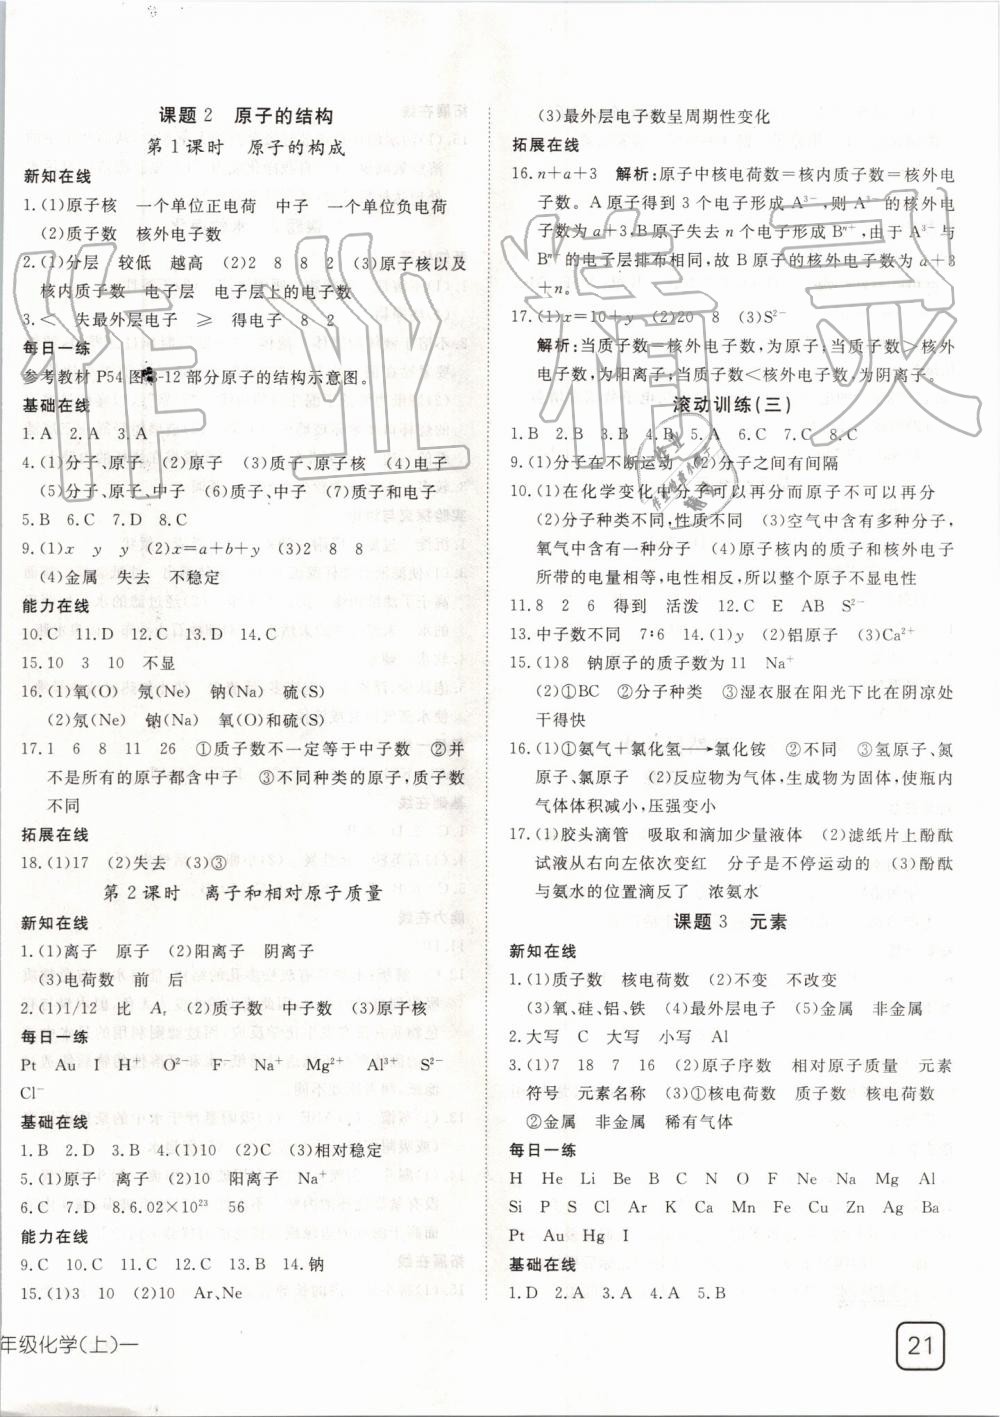 课题2　原子的结构
第1课时　原子的构成
新知在线
1.(1)原子核　一个单位正电荷　中子　一个单位负电荷
(2)质子数　核外电子数
2.(1)分层　较低　越高　(2)2　8　8　2　(3)原子核以及
核内质子数　电子层　电子层上的电子数
3.<　失最外层电子　≥　得电子　8　2
每日一练
参考教材 P54 图3-12 部分原子的结构示意图。
基础在线
1.A　2.A　3.A
4.(1)分子、原子　(2)原子　(3)质子、原子核　(4)电子
(5)分子、原子、中子　(6)质子、中子　(7)质子和电子
5.B　6.C　7.D　8.C
9.(1)x　y　y　(2)x=a+b+y　(3)2　8　8
(4)金属　失去　不稳定
能力在线
10.C　11.D　12.C　13.D　14.C
15.10　3　10　不显
16.(1)氧(O)　氖(Ne)　钠(Na)　硫(S)
(2)氖(Ne)　钠(Na)　氧(O)和硫(S)
17.1　6　8　11　26　①质子数不一定等于中子数　②并
不是所有的原子都含中子　③不同种类的原子,质子数
不同
拓展在线
18.(1)17　(2)失去　(3)③
第2课时　离子和相对原子质量
新知在线
1.(1)离子　原子　(2)阳离子　阴离子
(3)电荷数　前　后
2.(1)1/12　比　Ar　(2)质子数　中子数　(3)原子核
每日一练
Pt　Au　I　H⁺　O²⁻　F⁻　Na⁺　Mg²⁺　Al³⁺　S²⁻
Cl⁻
基础在线
1.B　2.D　3.B　4.(1)10　C　(3)相对稳定
5.(1)原子　离子　(2)10　阳离子　Na⁺
6.C　7.D　8.6.02×10²³　56
能力在线
9.C　10.C　11.C　12.C　13.B　14.钠
15.(1)3　10　(2)10　Ar、Ne
年级化学(上)—
(3)最外层电子数呈周期性变化
拓展在线
16.n+a+3　解析:原子中核电荷数=核内质子数=核外电
子数。A 原子得到 3 个电子形成 A³⁻,则 A³⁻ 的核外电
子数为 a+3,B 原子失去 n 个电子形成 Bⁿ⁺,由于 A³⁻ 与
Bⁿ⁺ 的电子层排布相同,故 B 原子的核外电子数为 a+3
+n。
17.(1)x=10+y　(2)20　8　(3)S²⁻
解析:当质子数=核外电子数,为原子;当质子数>核外
电子数,为阳离子;当质子数<核外电子数,为阴离子。
滚动训练(三)
1.B　2.B　3.B　4.B　5.A　6.C　7.C　8.C
9.(1)分子在不断运动　(2)分子之间有间隔
10.(1)在化学变化中分子可以再分而原子不可以再分
(2)分子种类不同,性质不同　(3)空气中含有多种分子,
氧气中含有一种分子　(4)原子核内的质子和核外电子
所带的电量相等,电性相反,所以整个原子不显电性
11.8　2　6　得到　活泼　12.C　E　AB　S²⁻
13.中子数不同　7:6　14.(1)y　(2)铝原子　(3)Ca²⁺
15.(1)8　钠原子的质子数为11　Na⁺
(2)①BC　②分子种类　③湿衣服在阳光下比在阴凉处
干得快
16.(1)①氨气+氯化氢→氯化铵　②不同　③氢原子、氮
原子、氯原子　(2)反应物为气体,生成物为固体,使瓶内
气体体积减小,压强变小
17.(1)胶头滴管　吸取和滴加少量液体　(2)滤纸片上酚酞
试液从右向左依次变红　分子是不停运动的　(3)酚酞
与氨水的位置滴反了　浓氨水
课题3　元素
新知在线
1.(1)质子数　核电荷数　(2)不变　不改变
(3)氧、硅、铝、铁　(4)最外层电子　(5)金属　非金属
2.大写　C　大写　小写　Al
3.(1)7　18　7　16　(2)原子序数　相对原子质量　元素
符号　元素名称　(3)①核电荷数　质子数　核电荷数
②金属　非金属　稀有气体
每日一练
H　He　Li　Be　B　C　N　O　F　Ne　Na　Mg　Al
Si　P　S　Cl　Ar　K　Ca　Mn　Fe　Cu　Zn　Ag　Ba
Pt　Au　Hg　I
基础在线
1.D　2.A　3.A　4.A　5.B
21
作业精灵